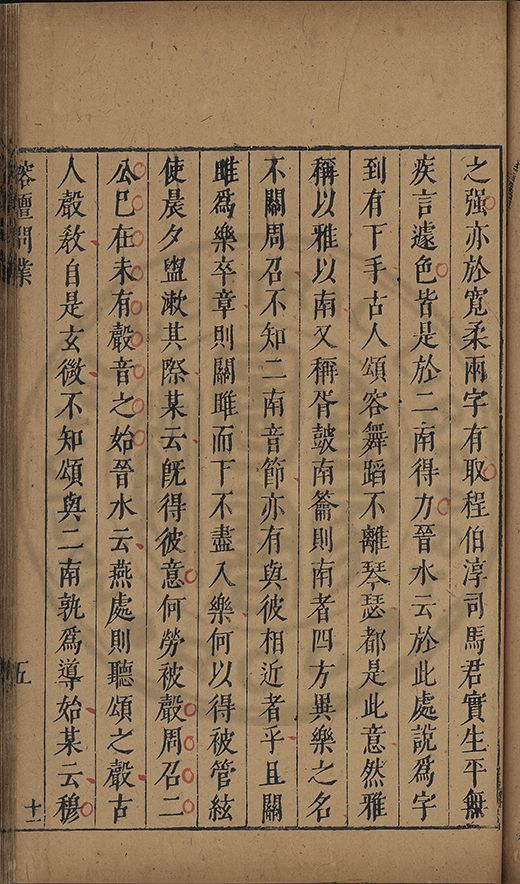 之强亦於寬柔兩字有取程伯淳司馬君實生平無
疾言遽色皆是於二南得力晉水云於此處說爲字
到有下手古人頌容舞蹈不離琴瑟都是此意然雅
稱以雅以南又稱胥鼓南籥則南者四方異樂之名
不關周召不知二南音節亦有與彼相近者乎且關
雎爲樂卒章則關雎而下不盡入樂何以得被管絃
使晨夕盥漱其際某云旣得彼意何勞被聲周召二
公巳在未有聲音之始晉水云燕處則聽頌之聲古
人聲敎自是玄微不知頌與二南孰爲導始某云穆
榕壇問業
五
十一